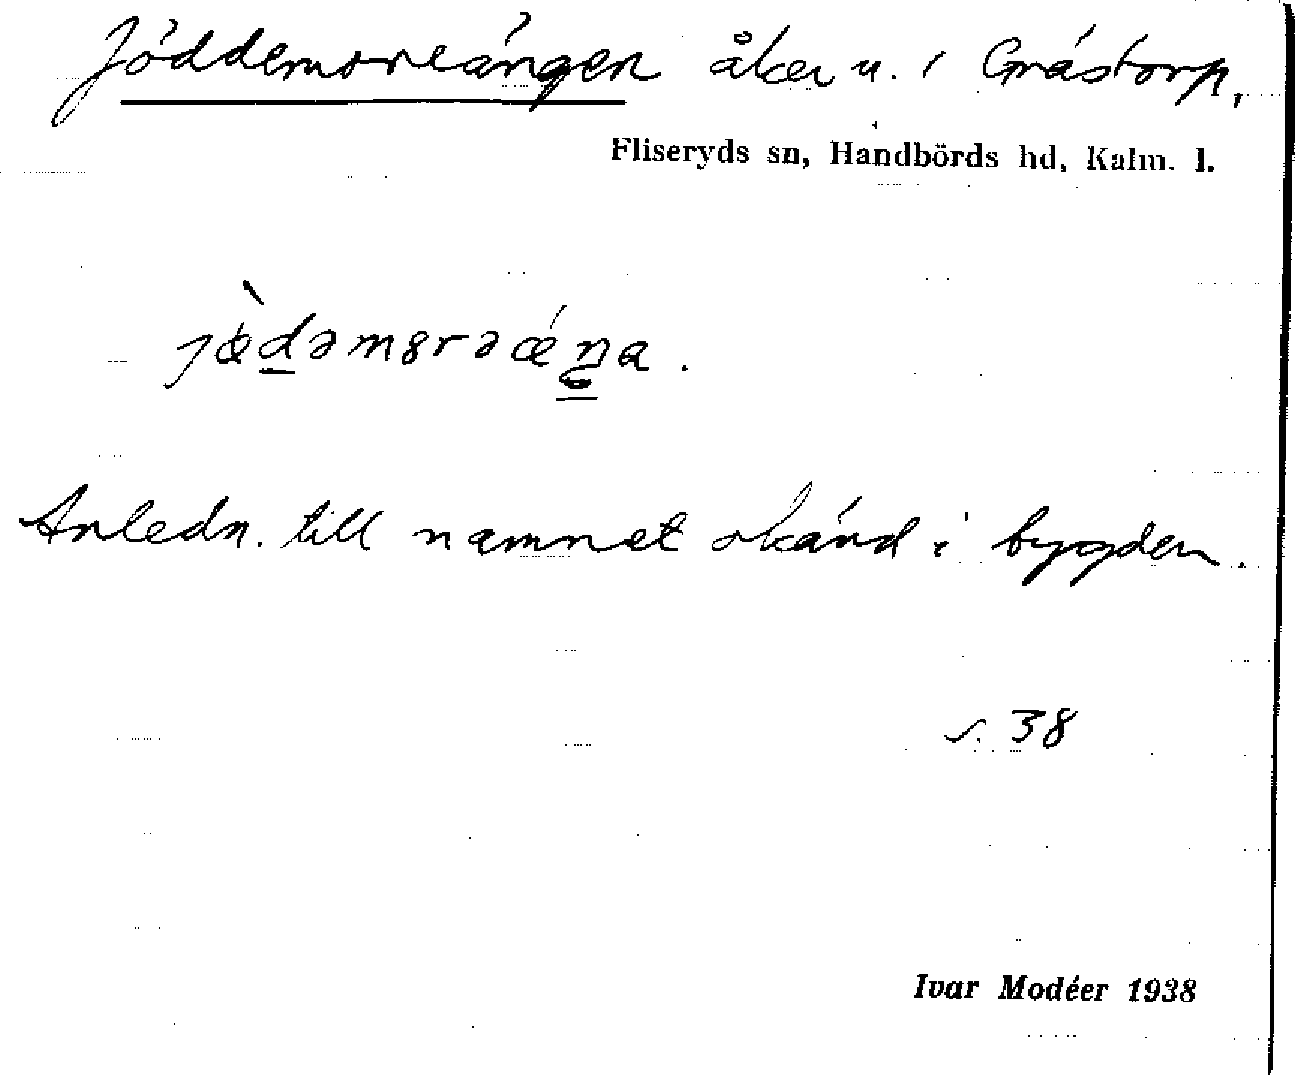 Jöddemoreängen åker u. i Gråstorp,
Fliseryds sn, Handbörds hd, Kalm. l.
Anledn. till namnet okänd i bygden.
s. 38
Ivar Modéer 1938